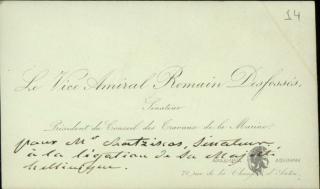 14
Le Vice Amiral Romain Desfossés,
Sénateur
Président du Conseil des Travaux de la Marine
pour Mr
à la légation de Sa Maj
Hellénique.
rue de la Chaussée d'Antin